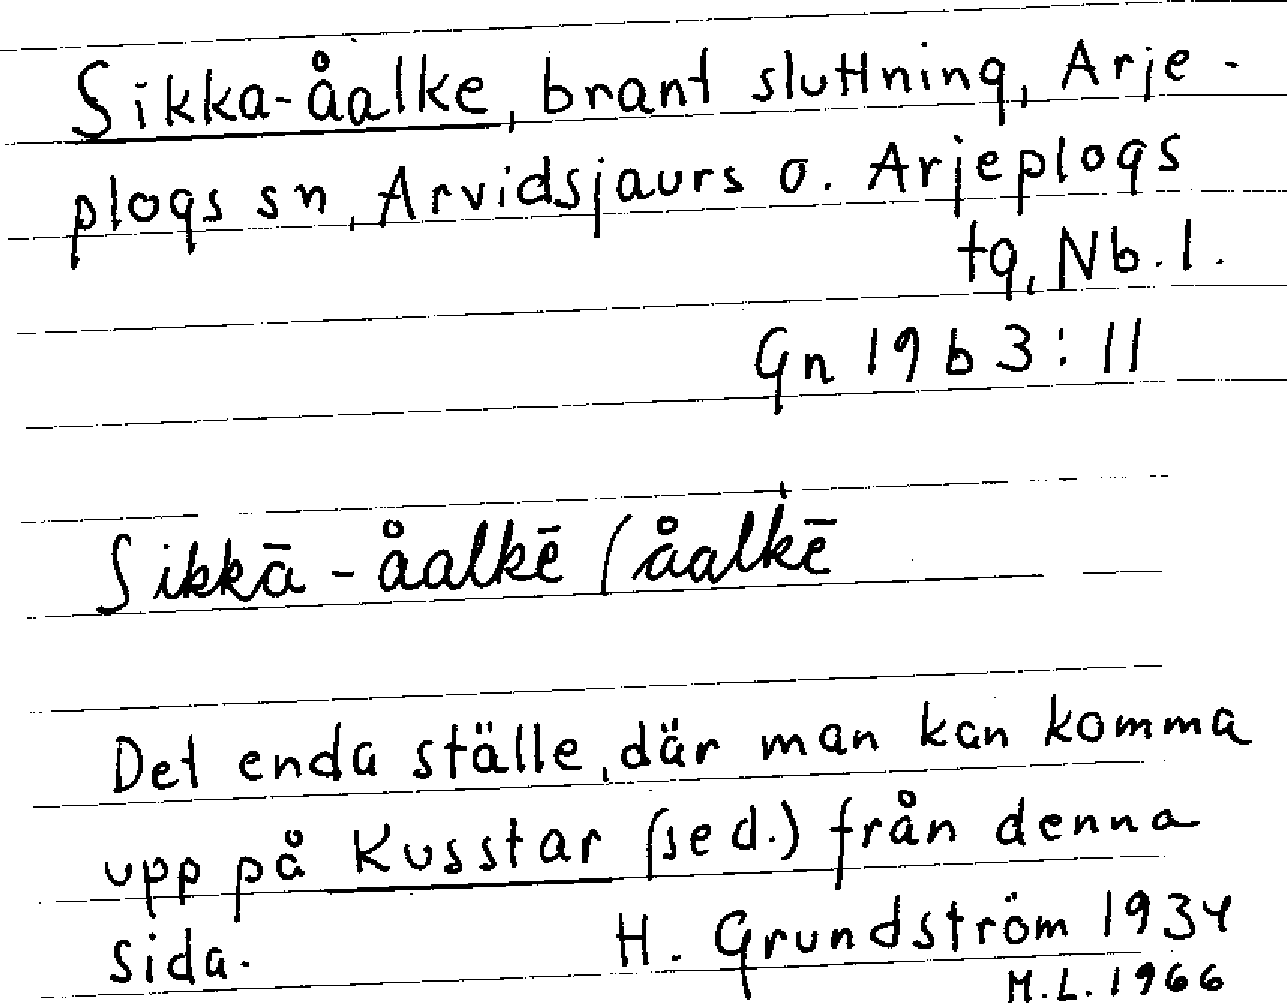 Sikka-åalke, brant sluttning, Arje-
plogs sn, Arvidsjaurs o. Arjeplogs
tg, Nb. l.
Gn 19 b 3:11
Sikkā-åalkē (åalkē
Det enda ställe, där man kan komma
upp på Kusstar (se d.) från denna
sida. H. Grundström 1934
M.L. 1966